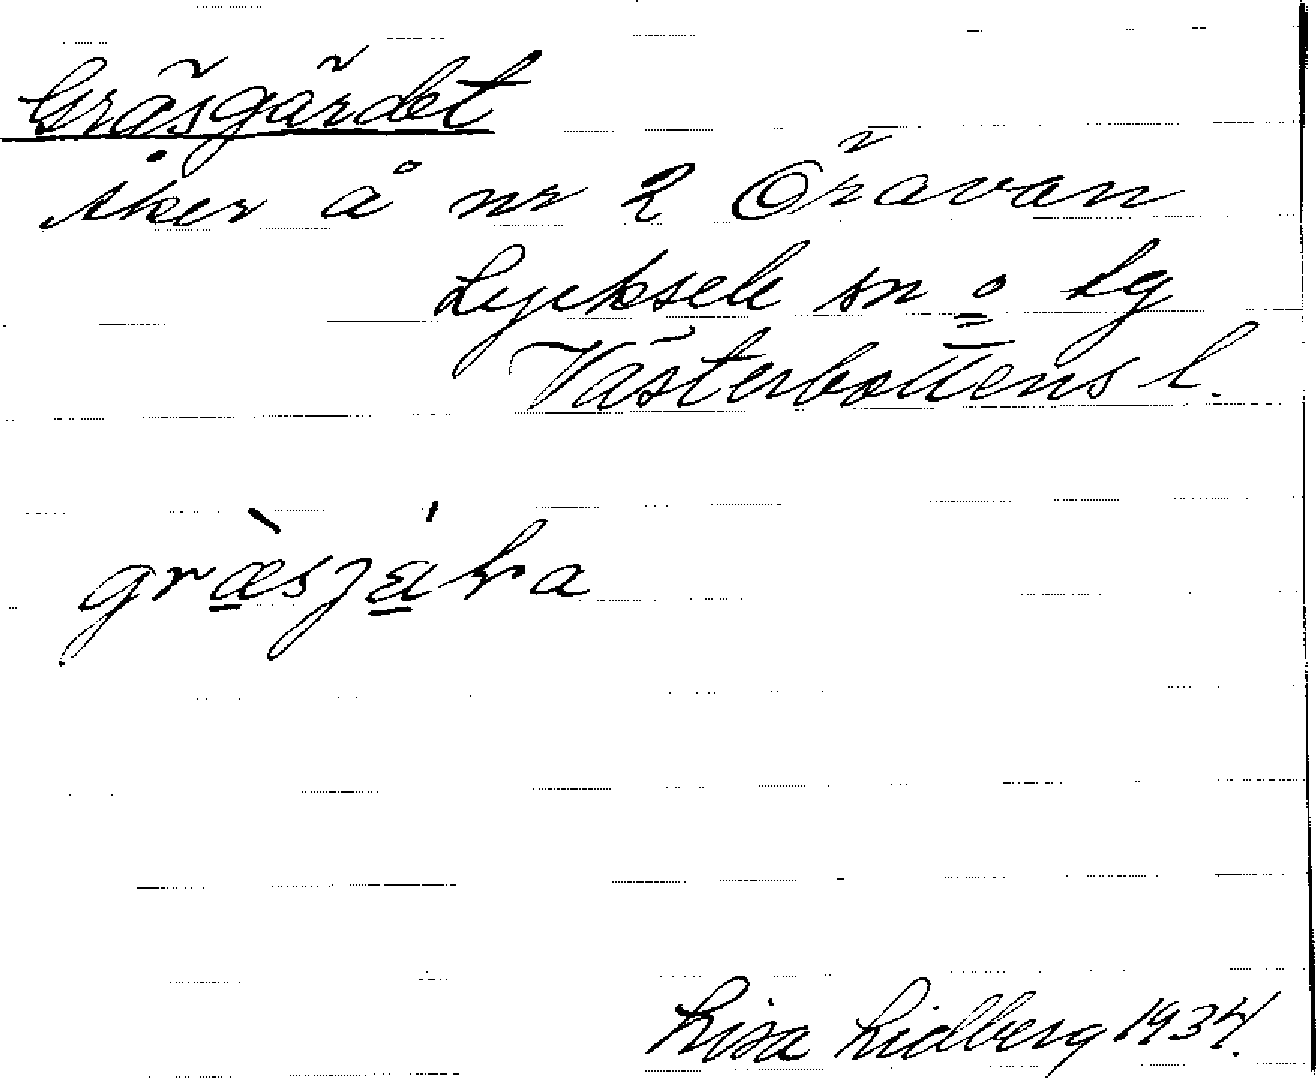 Gräsgärdet
åker å nr 2 Öravan
Lycksele sn o lg
Västerbottens l.
græ̀sjǽḷa
Lisa Lidberg 1934.